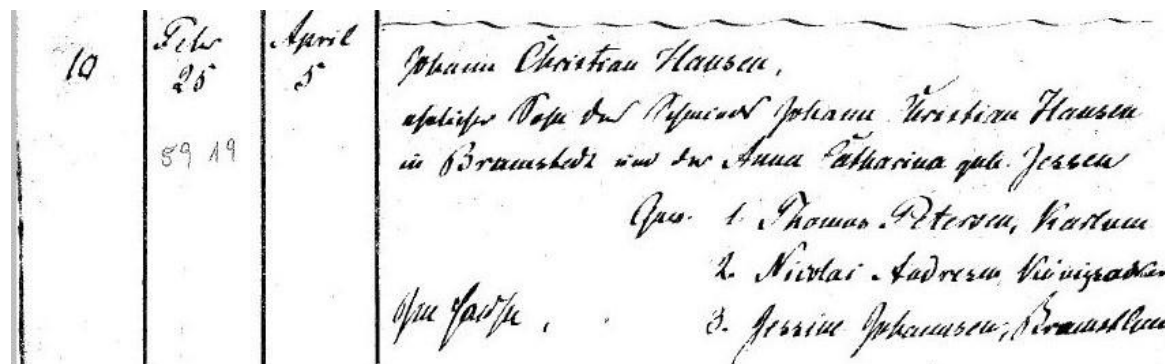 10
Febr
25
April
5
59 19
Johann Christian Hansen,
ehelicher Sohn des Schmieds Johann Christian Hansen
in Bramstedt und der Anna Catharina geb. Jessen
Gev. 1. Thomas Petersen, Karlum
2. Nicolai Andresen,
3. Jessine Johannsen,